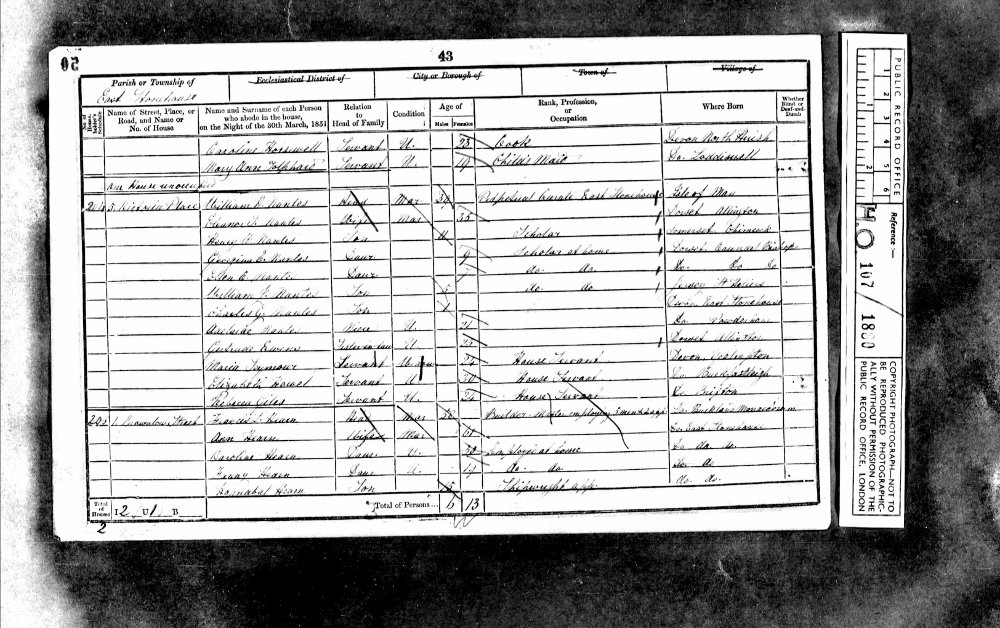 50
43
Parish or Township of
East Stonehouse
Ecclesiastical District of
City or Borough of
Town of
Village of
No. of House-holder's Schedule
Name of Street, Place, or Road, and Name or No. of House
Name and Surname of each Person who abode in the house, on the Night of the 30th March, 1851
Relation to Head of Family
Condition
Age of
Males
Females
Rank, Profession, or Occupation
Where Born
Whether Blind or Deaf-and-Dumb
Caroline Horswell Servant U. 23 Cook Devon North Huish
Mary Ann Servant U. 19 Child's Maid Do. Loddiswell
One House unoccupied
5 Victoria Place William Nantes Head Mar Perpetual Curate East Stonehouse Isle of Man
Nantes Wife Mar 35 Dorset Allington
Henry Nantes Son 11 Scholar Somerset Chinnock
Georgina Nantes Daur 9 Scholar at home Dorset Caundle Bishop
Ellen Nantes Daur 7 do. do. Do. Do Do
William Nantes Son 5 do. do. Jersey St Heliers
Charles G. Nantes Son 1 Devon East Stonehouse
Adelaide Nantes Niece U. 21 Do Powderham
Gertrude Sister in law U. Dorset Allington
Maria Seymour Servant House Servant Devon
Elizabeth Howel Servant U 30 House Servant Do Buckfastleigh
Rebecca Giles Servant U. House Servant Do Brixton
292 1 Brownlow Street Francis Hearn Head Mar Builder Master employing Do Buckland Monachorum
Ann Hearn Wife Mar Do. East Stonehouse
Caroline Hearn Daur U. 20 Employed at home Do do. do.
Hearn Daur U. 17 Do. do. Do do
Hearn Son 15 Shipwright app do. do.
Total of Houses I 2 U 1 B
Total of Persons... 6 13
2
PUBLIC RECORD OFFICE
1 2 3 4 5 6
1 2
Reference :-
HO 107 / 1880
COPYRIGHT PHOTOGRAPH—NOT TO BE REPRODUCED PHOTOGRAPHICALLY WITHOUT PERMISSION OF THE PUBLIC RECORD OFFICE, LONDON